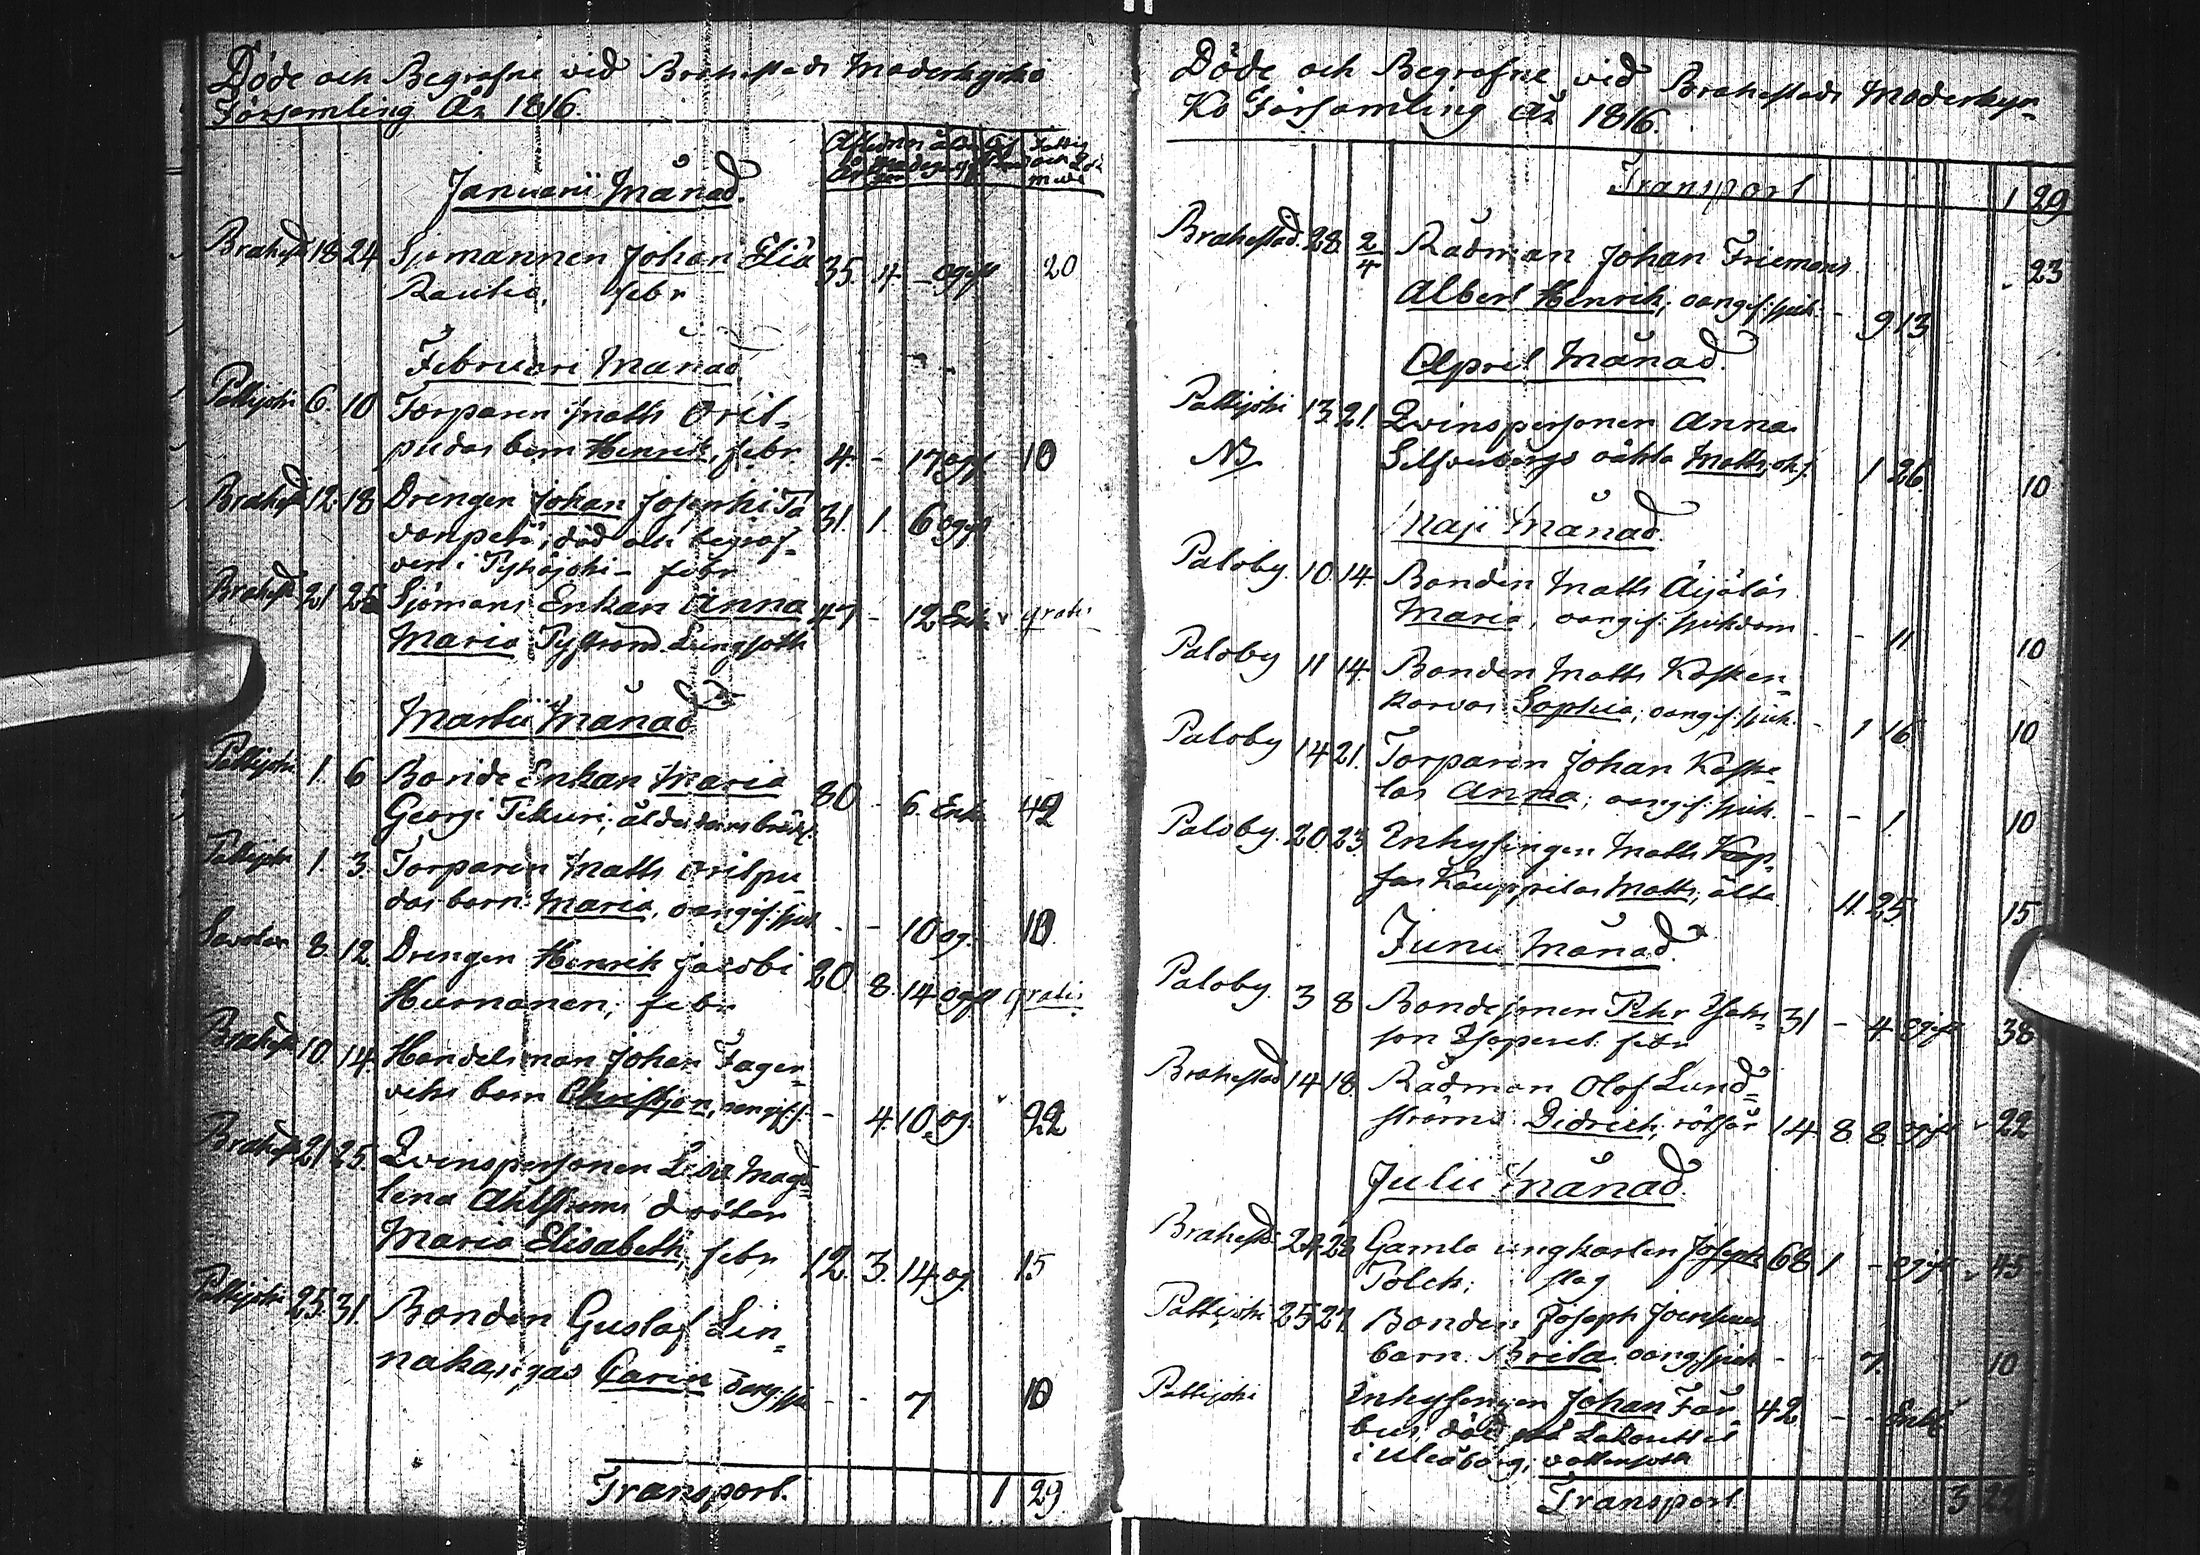 Döde och Begrafne vid Brahestads Moderkyrko
Församling År 1816.
Januarii Månad.
Brahest 18 24 Sjömannen Johan Eliæ 35. 4. - ogift 20
Rautio, febr
Februari Månad
Pattijoki 6. 10 Torparen Matts Oril-
pudas barn Henrik, febr 4. - 17 ogf 10
Brahest 12. 18 Drengen Johan Josephi Ta 31. 1. 6 ogift
vanpelä, död och begraf-
ven i Pyhäjoki - febr
Brahest 21 25 Sjömans Enkan Anna 47 - 12 Enk gratis
Maria Lungsott
Martii Månad
Pattijoki 1. 6 Bonde Enkan Maria 80 - 6. Enk 42
Georgi Tikuri; ålderdoms bräckl.
Pattijoki 1. 3. Torparen Matts Orilpu-
das barn Maria, oangif: sjuk - - 10 og. 10
Savolax 8. 12. Drengen Henrik Jacobi 20 8. 14 ogift gratis
Hurnanen; febr
Brahest 10. 14. Handelsman Johan Fager-
viks barn Christian, oangif: s. - 4. 10. og. 22
Brahest 21 25. Qvinspersonen Lisa Magd-
lena Ahlströms dotter
Maria Elisabeth, febr 12. 3. 14. og. 15
Pattijoki 25. 31. Bonden Gustaf Lin-
nakangas Carin oang: sju - - 7 10
Transport. 1 29
Döde och Begrafne vid Brahestads Moderkyr-
ko Församling År 1816.
Transport 1 29
Brahestad. 28. 2/4 Rådman Johan Friemans 23
Albert Henrik; oangif: sjuk - 9 13
April Månad.
Pattijoki 13 21. Qvinspersonen Anna
NB Silfverbergs oäkta Matts, 1 26. 10
Maji Månad.
Paloby. 10. 14. Bonden Matts Äijäläs
Maria, oangif: sjukdom - - 11 10
Paloby 11 14. Bonden Matts Kosken-
korvas Sophia; oangif: sjuk. - 1 16 10
Paloby 14 21. Torparen Johan Koske-
las Anna; oangif: sjuk. - - 1. 10
Paloby. 20. 23. Inhysingen Matts
Kauppilas Matts, 11. 25. 15
Junii Månad.
Paloby. 3 8 Bondesonen Pehr Isaks- 31 - 4. ogift 38
son febr
Brahestad 14 18. Rådman Olof Lund-
ströms Didrich, rötfär 14. 8. 8. ogift 22
Julii Månad.
Brahestd 24. 28 Gamla ungkarlen Joseph 68 1 - ogift 45
Polch; slag
Pattijoki 25 27. Bonden Joseph
barn Brita oang: sjuk - - 7. 10
Pattijoki Inhysingen Johan Far- 42 - - Enkl
bus, död på Lazarettet
i Uleåborg, vattensott
Transport 3 22